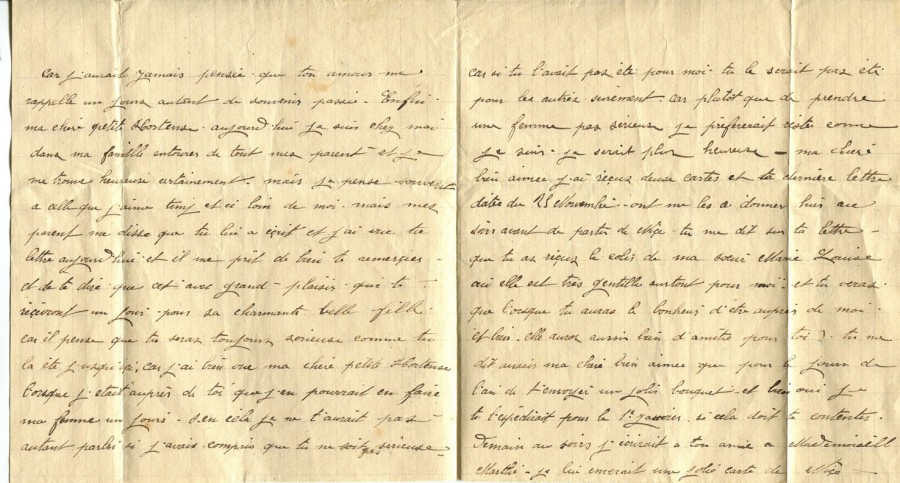 car j'aurait jamais pensée que ton amour me
rappelle un jours autant de souvenir passée. Enfin
ma chere petite Hortense aujourd'hui je suis chez moi
dans ma famille entourer de tout mes parent et je
me trouve heureuse certainement. mais je pense souvent
a celle que j'aime temp et ci loin de moi. mais mes
parent me disse que tu lui a écrit et j'ai vue ta
lettre aujourd'hui et il me prit de bien te remercier
et de te dire que cet avec grand plaisir que te
reçevront un jour pour sa charmante belle fille.
car il pense que tu seras toujours serieuse comme tu
la été jusqu'ici, car j'ai bien vue ma chere petite Hortense
lorsque j'etait auprès de toi que j'en pourrait en faire
ma femme un jours. s'en cela je ne t'aurait pas
autant parlée si j'avais compris que tu ne soit pas serieuse
car si tu l'avait pas été pour moi tu le serait pas été
pour les autres surement car plutot que de prendre
une femme pas serieuse je prefererait resté comme
je suis je serait plus heureuse - ma cheré
bien aimee j'ai reçus deuse cartes et ta derniere lettre
datés du 25 Novembre. ont me les a donner hier au
soirs avant de partir de Nice. tu me dit sur ta lettre
que tu as reçus le colis de ma soeur Marie Louise
oui elle est très gentille surtout pour moi et tu veras
que lorsque tu auras le bonheur d'etre auprès de moi
et bien elle auras aussi bien d'amitié pour toi). tu me
dit aussis ma chere bien aimee que pour le jour de
l'an de t'envoyer un jolis bouquet et bien oui je
te l'expédirait pour le 1er janvier si cela doit te contenter.
Demain au soirs j'ecrirait a ton amie a Mademoisell
Marthe. je lui enverait une jolie carte de Nice